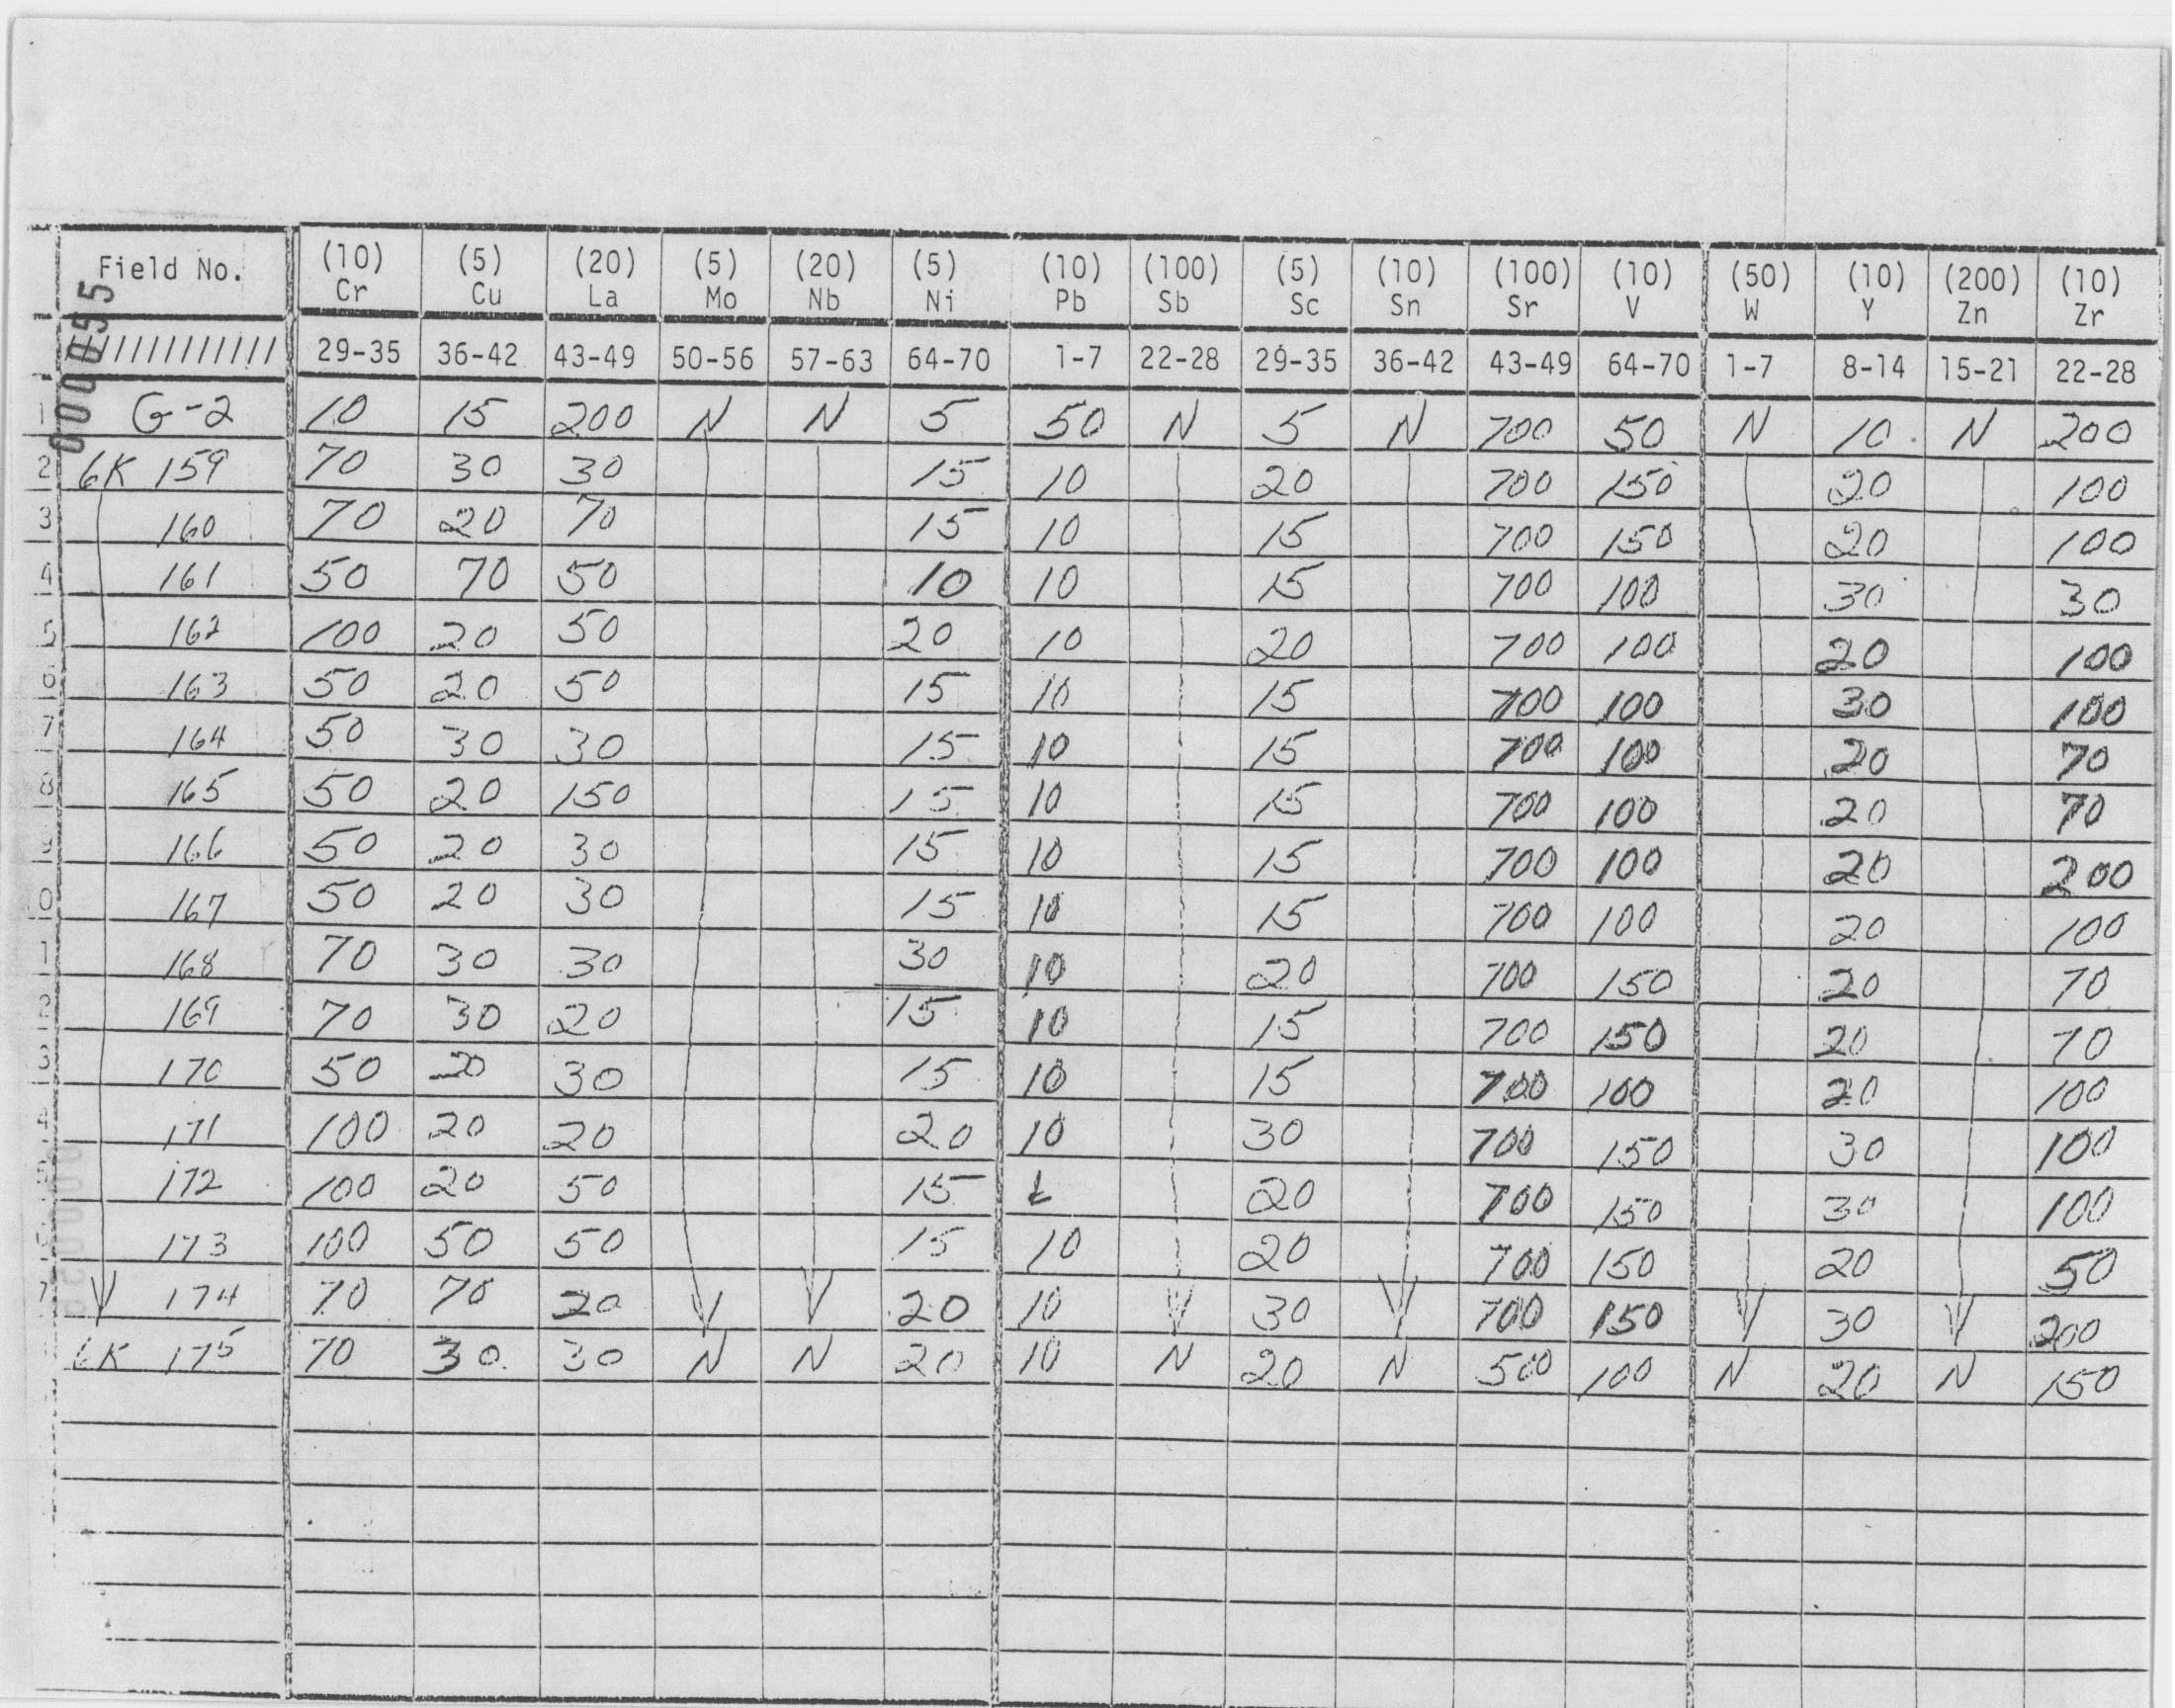 000055
Field No. (10) Cr (5) Cu (20) La (5) Mo (20) Nb (5) Ni (10) Pb (100) Sb (5) Sc (10) Sn (100) Sr (10) V (50) W (10) Y (200) Zn (10) Zr
//////////// 29-35 36-42 43-49 50-56 57-63 64-70 1-7 22-28 29-35 36-42 43-49 64-70 1-7 8-14 15-21 22-28
1 G-2 10 15 200 N N 5 50 N 5 N 700 50 N 10 N 200
2 6K 159 70 30 30 15 10 20 700 150 20 100
3 160 70 20 70 15 10 15 700 150 20 100
4 161 50 70 50 10 10 15 700 100 30 30
5 162 100 20 50 20 10 20 700 100 20 100
6 163 50 20 50 15 10 15 700 100 30 100
7 164 50 30 30 15 10 15 700 100 20 70
8 165 50 20 150 15 10 15 700 100 20 70
9 166 50 20 30 15 10 15 700 100 20 200
0 167 50 20 30 15 10 15 700 100 20 100
1 168 70 30 30 30 10 20 700 150 20 70
2 169 70 30 20 15 10 15 700 150 20 70
3 170 50 20 30 15 10 15 700 100 20 100
4 171 100 20 20 20 10 30 700 150 30 100
172 100 20 50 15 L 20 700 150 30 100
173 100 50 50 15 10 20 700 150 20 50
7 174 70 70 20 20 10 30 700 150 30 200
6K 175 70 30 30 N N 20 10 N 20 N 500 100 N 20 N 150